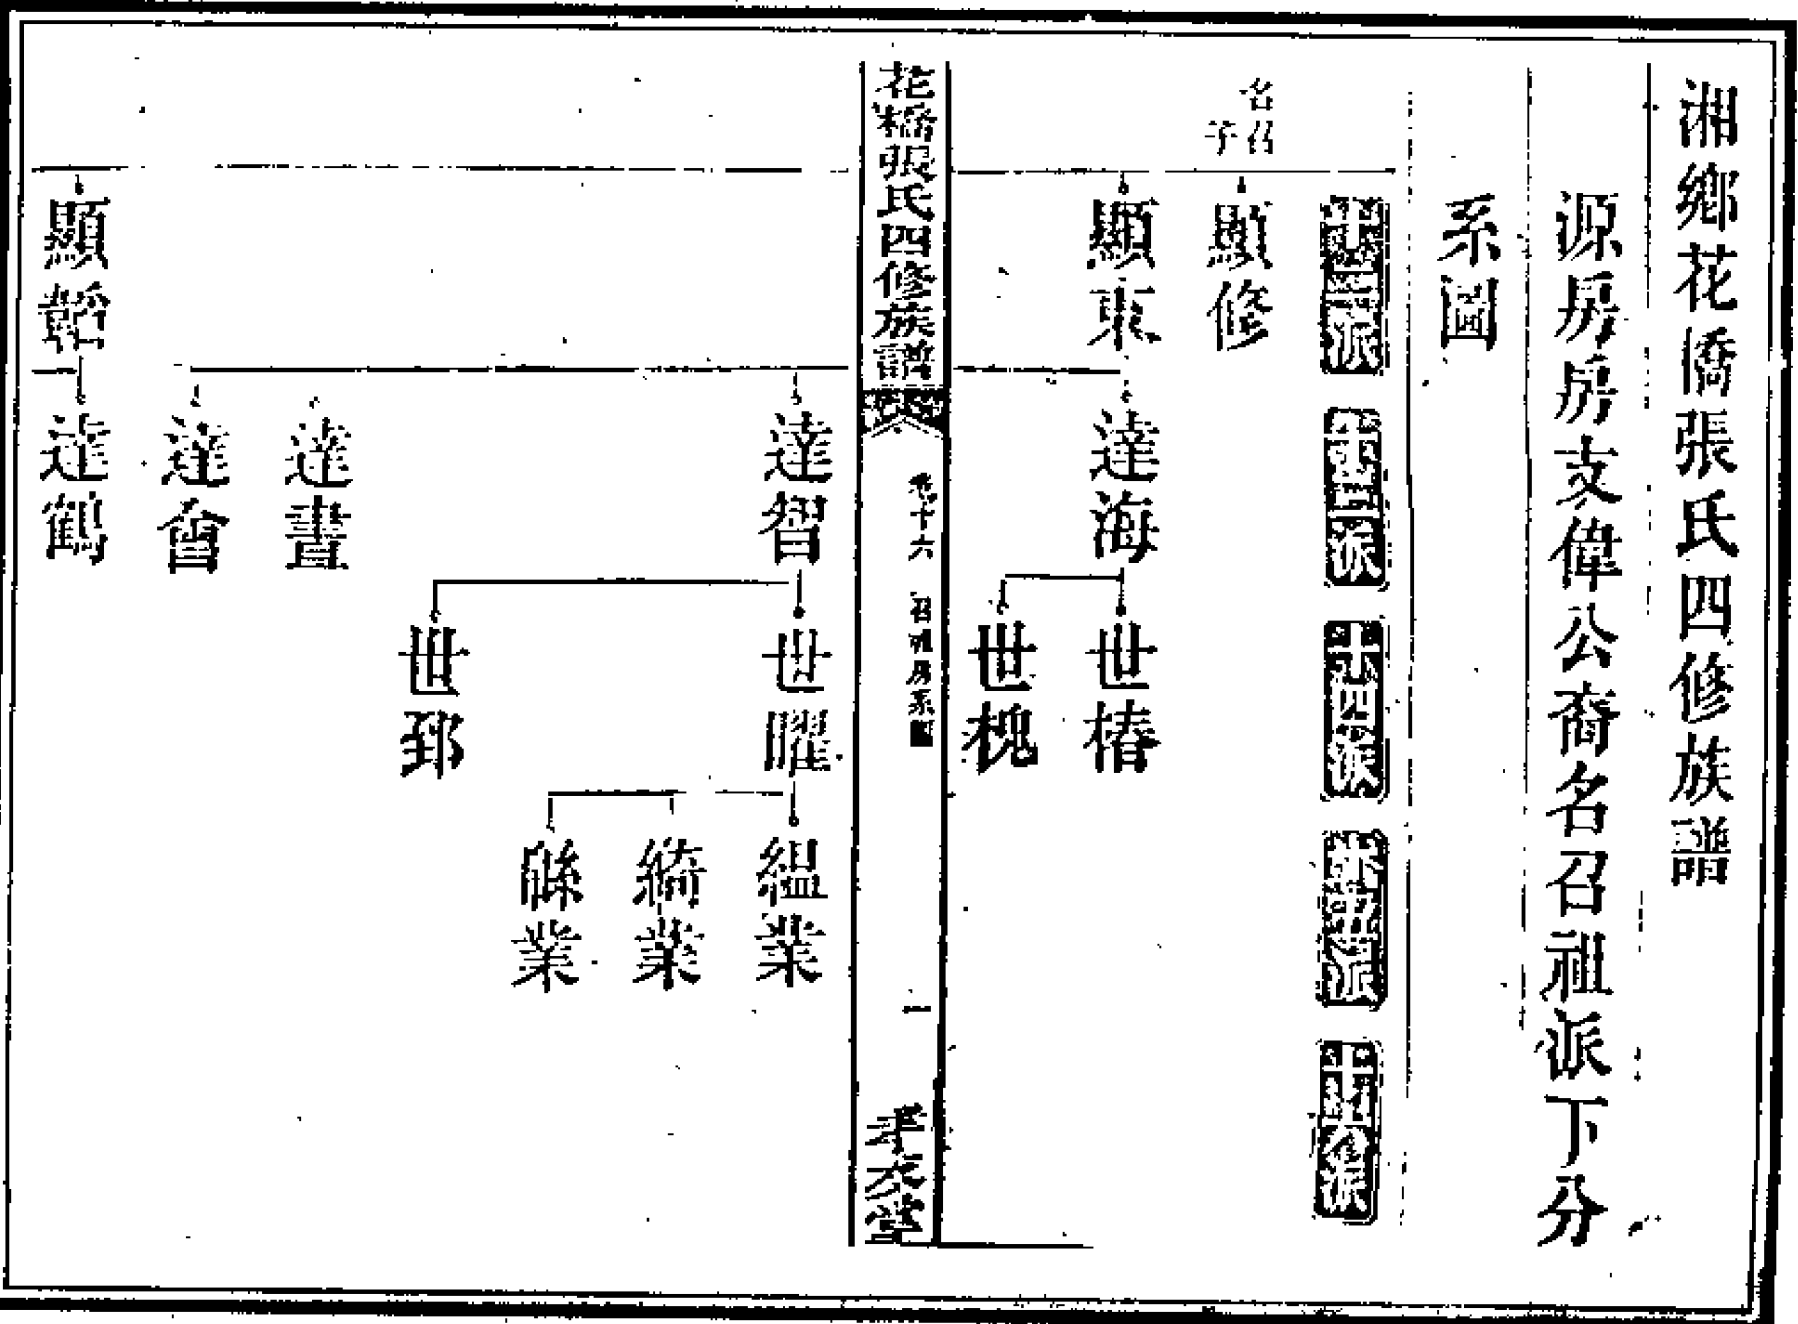 湘鄉花橋張氏四修族譜
源房房支偉公裔名召祖派下分
系圖
十二派
十三派
十四派
十五派
十六派
名召
子
顯修
顯東
達海
世椿
世槐
花橋張氏四修族譜
卷十六
房系圖
一
孝友堂
達智
世曜
緼業
綺業
緜業
世郅
達晝
達會
顯韜
達鶴